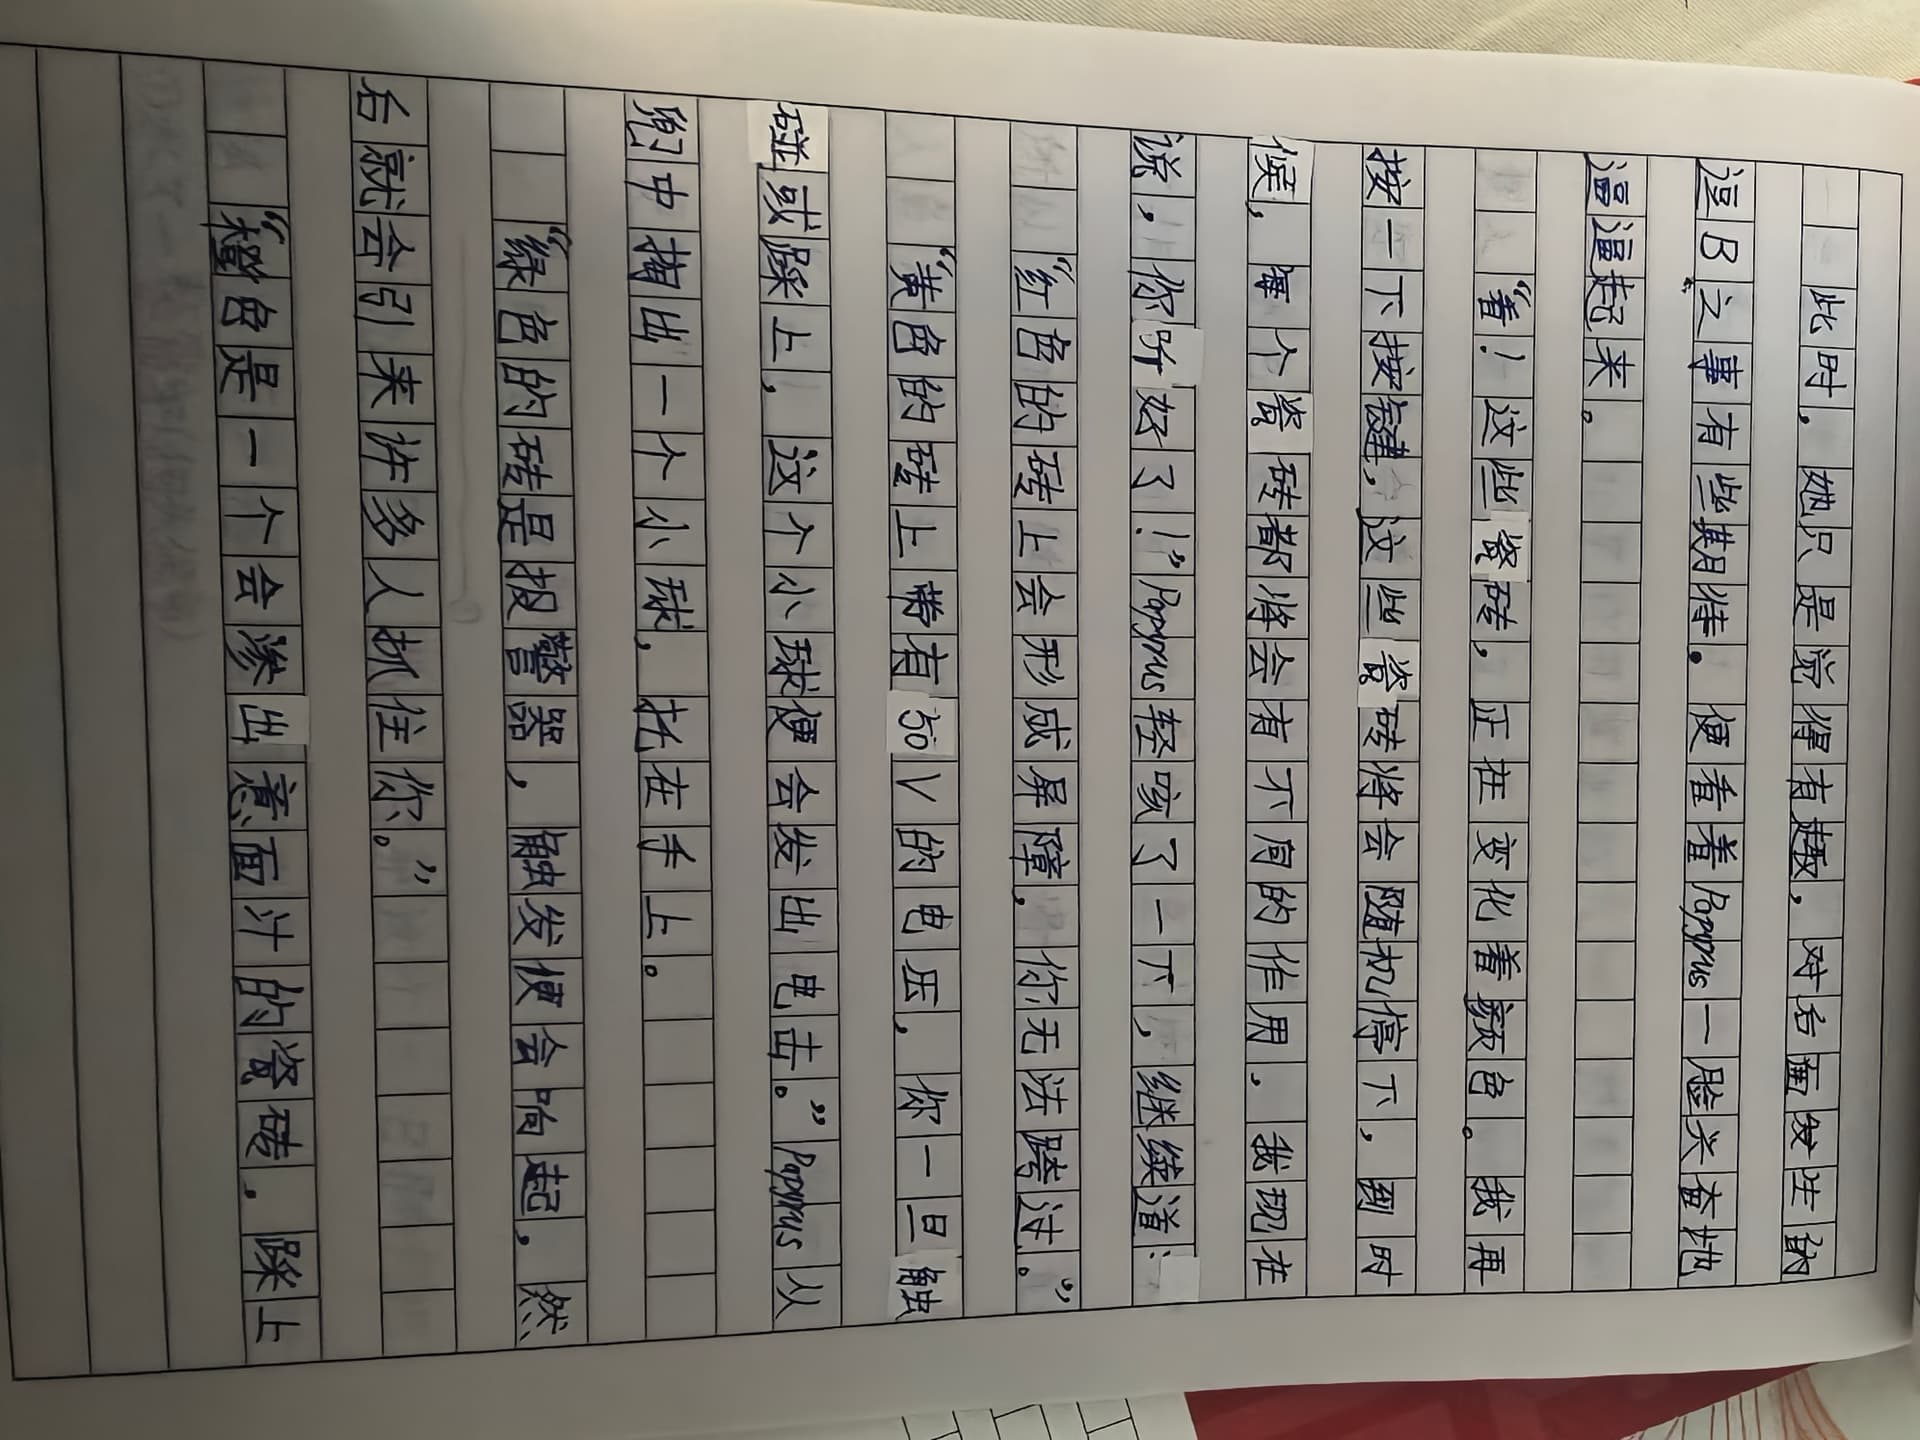 此时，她只是觉得有趣，对后面发生的
逗B之事有些期待。便看着Papyrus一脸兴奋地
逼逼起来。
“看！这些瓷砖，正在变化着颜色。我再
按一下按键，这些瓷砖将会随机停下，到时
候，每个瓷砖都将会有不同的作用，我现在
说，你听好了！”Papyrus轻咳了一下，继续道：
“红色的砖上会形成屏障，你无法跨过。”
“黄色的砖上带有50V的电压，你一旦触
碰或踩上，这个小球便会发出电击。”Papyrus从
兜中掏出一个小球，托在手上。
“绿色的砖是报警器，触发便会响起，然
后就会引来许多人抓住你。”
“橙色是一个会渗出意面汁的瓷砖，踩上